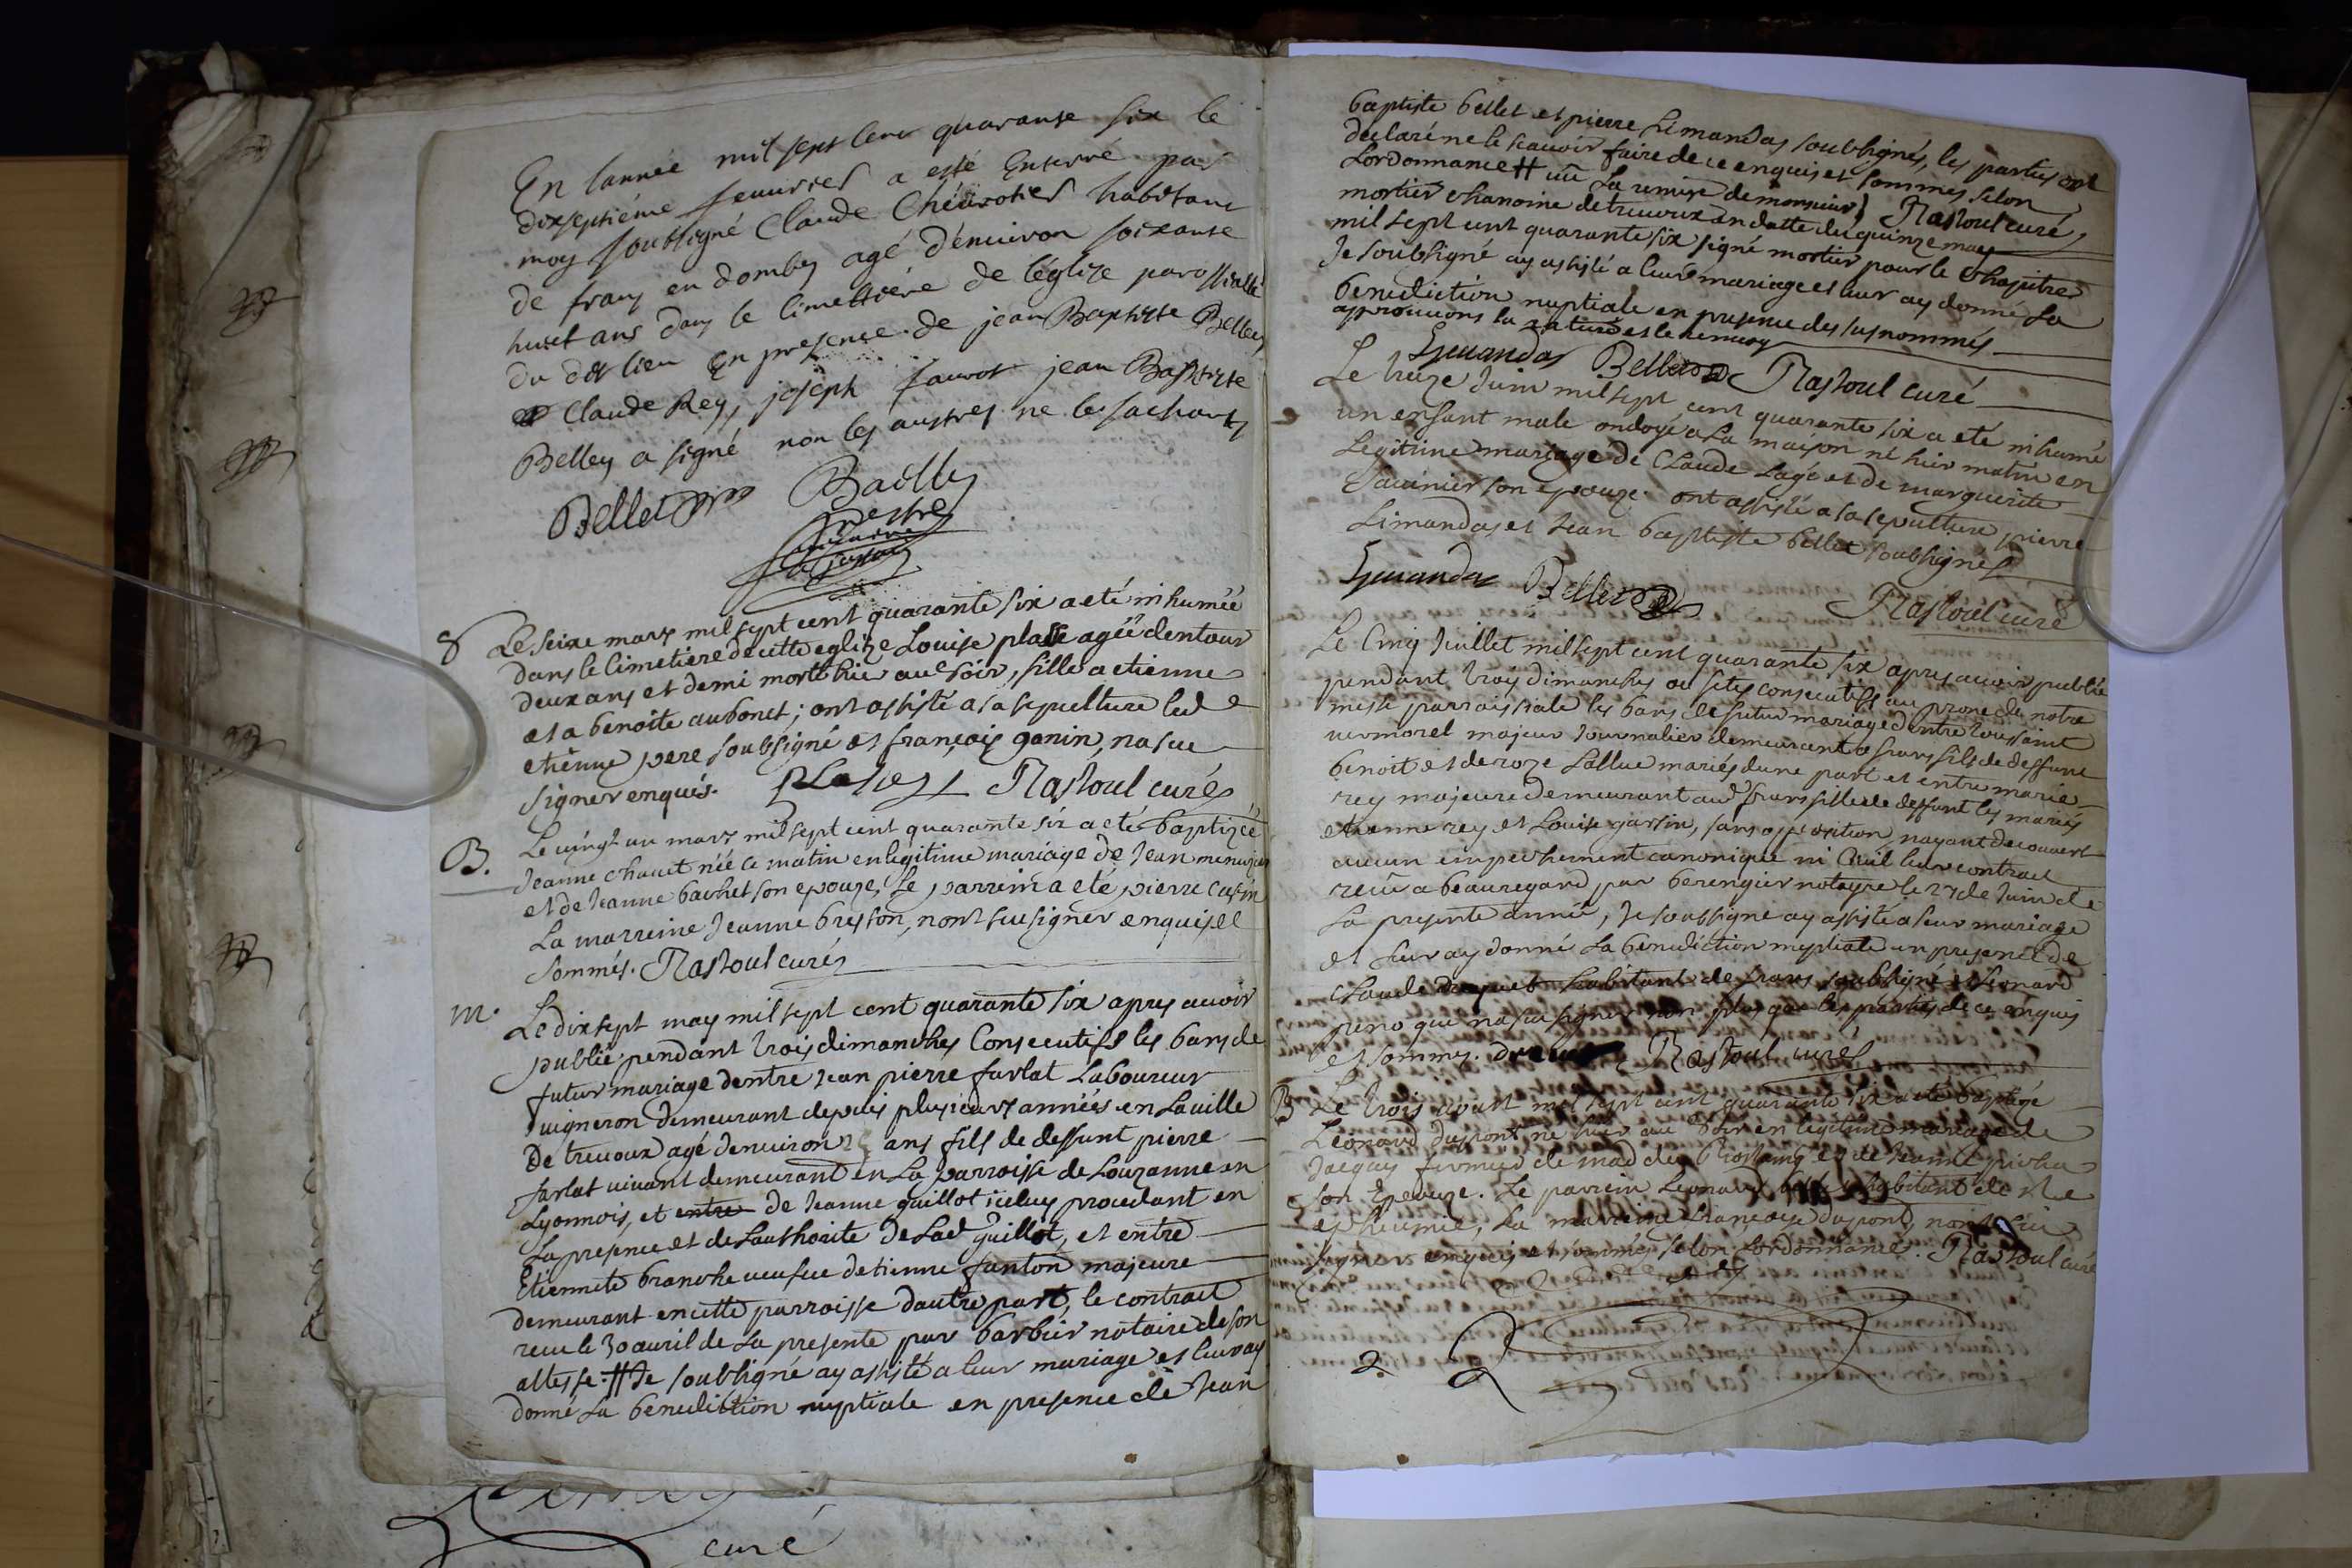 En lannée mil sept cens quarante six le
dixseptiéme feuurier a esté Enterré par
moy soubsigné Claude Cheurotier habitant
de frans en dombes agé d'énuiron soixante
huict ans dans le cimettiére de léglize paroissialle
du dit lieu En presence de jean Baptiste Belley
Claude Rey, joseph jean Baptiste
Belley a signé non les austres ne le sachant
Bellet Bailly
prestre
8 Le seize mars mil sept cent quarante six a eté inhumée
dans le cimetiere de cette eglize Louise plasse agée dentour
deux ans et demi morte hier au soir, fille a etienne
et a benoite aubonet; ont assisté a sa sepulture led
etienne pere soubsigné et françois ganin, na sue
signer enquis. Rastoul curé
B. Le vingt un mars mil sept cent quarante six a eté baptizée
Jeanne chanet née ce matin en legitime mariage de Jean
et de Jeanne bachet son epouze, Le parrein a eté pierre
La marreine Jeanne bresson, nont sue signer enquis et
sommés. Rastoul curé
m. Le dixsept may mil sept cent quarante six apres auoir
publié pendant trois dimanches Consecutifs les bans de
futur mariage dentre Jean pierre farlat Laboureur
vigneron demeurant depuis plusieurs années en La ville
De treuoux agé denuiron ans fils de deffunt pierre
farlat viuant demeurant en La parroisse de Louzanne en
Lyonnois, et entre de Jeanne guillot iceluy procedant en
La presence et de Lauthorite De Lad Guillot, et entre
Etiennete branche ueufue detienne fanton majeure
demeurant en cette parroisse dautre part, le contract
receu le 30 auril de La presente par barbier notaire de son
altesse. # Je soubsigné ay assisté a leur mariage et leur ay
donné La benediction nuptiale en presence de Jean
baptiste bellet et pierre Limandas soubsignés, les parties ont
declaré ne le scauoir faire de ce enquis et sommés selon
Lordonnance # vû La remise de monsieur Rastoul curé
mortier chanoine de treuoux en datte du quinze may
mil sept cent quarante six signé mortier pour le Chapitre
Je soubsigné ay assisté a leur mariage et leur ay donné La
benediction nuptiale en presence des susnommés
approuuons la rature et le renuoy
Limandas Bellet Rastoul curé
Le treze Juin mil sept cent quarante six a eté inhumé
un enfant male ondoyé a La maison né hier matin en
Legitime mariage de Claude Lagé et de marguerite
Sauinier son epouze. ont assisté a sa sepulture pierre
Limandas et Jean baptiste bellet soubsignés
Limandas Bellet Rastoul curé
Le Cinq Juillet mil sept cent quarante six apres auoir publié
pendant trois dimanches ou fetes consecutifs au prone de notre
messe parroissiale les bans de futur mariage dentre toussaint
vermorel majeur Journalier demeurant a frans fils de deffunt
benoit et de roze Lallue mariés dune part et entre marie
rey majeure demeurant aud frans fille de deffunt les mariés
etienne rey et Louise garsin, sans opposition, nayant decouuert
aucun empechement canonique ni Ciuil leur contract
receu a beauregard par berengier notayre le 27 de Juin de
La presente année, Je soubsigné ay assisté a leur mariage
et leur ay donné La benediction nuptiale en presence de
Claude habitant de frans soubsigné et Leonard
que na su signer non plus que les parties de ce enquis
et sommés. Rastoul curé
B Le trois aoust mil sept cent quarante six a eté baptizé
Leonard Dupont né hier au soir en legitime mariage de
fermier de mad de et de Jeanne
son Epouze. Le parrein Leonard habitant de Ste
euphemie, La marreine françoise dupont, nont scu
signer enquis et sommés selon Lordonnance. Rastoul curé
2.
curé